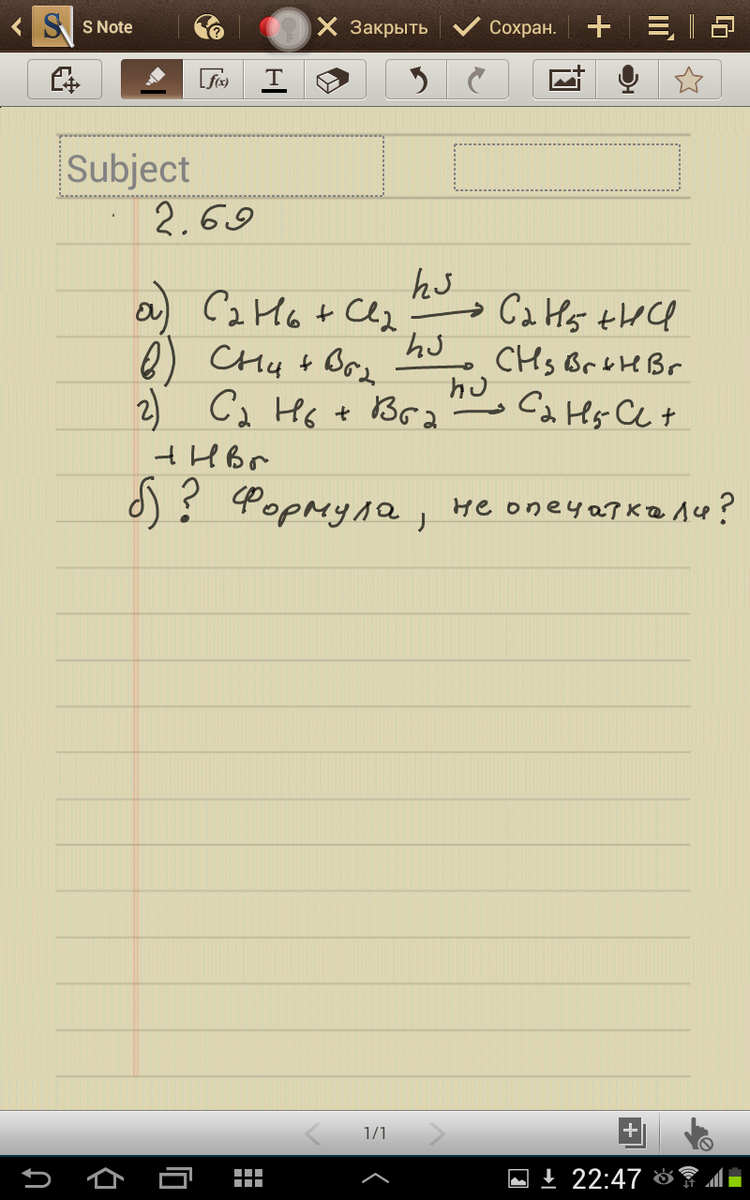 S Note
Закрыть
Сохран.
f(x)
T
Subject
2.69
а) C2H6 + Cl2 hν → C2H5 + HCl
в) CH4 + Br2 hν → CH3Br + HBr
г) C2H6 + Br2 hν → C2H5Cl +
+ HBr
б) ? Формула, не опечатка ли?
1/1
22:47